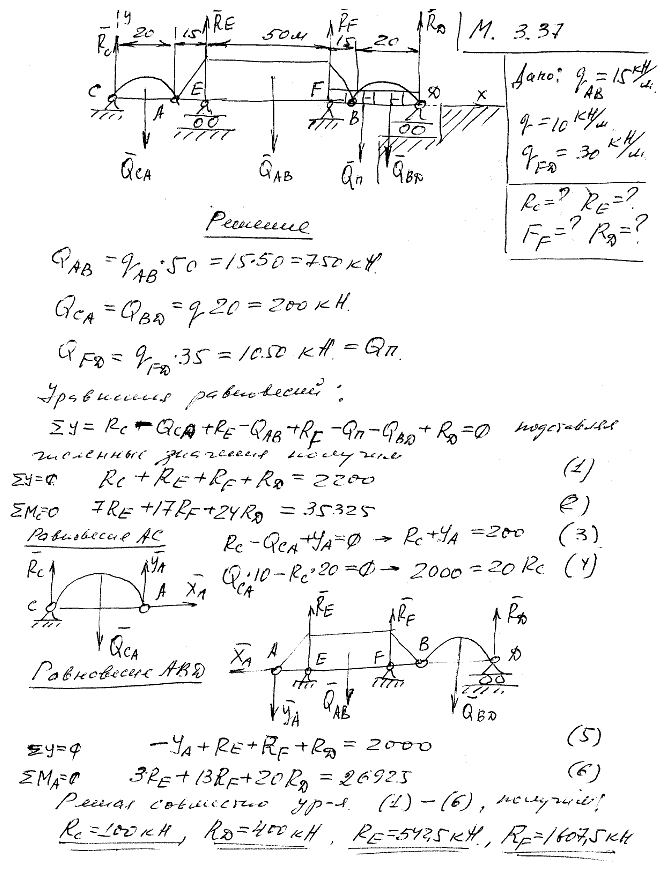 y
R̄c 20 15 R̄E 50м R̄F 15 20 R̄D
C A E F B D x
Q̄CA Q̄AB Q̄п Q̄BD
М. 3.37
Дано: qAB = 15 кН/м
q = 10 кН/м
qFD = 30 кН/м.
Rc=? RE=?
FF=? RD=?
Решение
QAB = qAB·50 = 15·50 = 750 кН.
QCA = QBD = q 20 = 200 кН.
QFD = qFD·35 = 1050 кН. = Qп.
Уравнения равновесий:
Σy = Rc - QCA + RE - QAB + RF - Qп - QBD + RD = 0 подставляя
численные значения получим
Σy=0 Rc + RE + RF + RD = 2200 (1)
ΣMc=0 7RE + 17RF + 24RD = 35325 (2)
Равновесие AC Rc - QCA + YA = 0 → Rc + YA = 200 (3)
QCA·10 - Rc·20 = 0 → 2000 = 20 Rc (4)
R̄c ȲA
C A X̄A
Q̄CA
R̄E R̄F R̄D
X̄A A E F B D
ȲA Q̄AB Q̄BD
Равновесие ABD
Σy=0 -YA + RE + RF + RD = 2000 (5)
ΣMA=0 3RE + 13RF + 20RD = 26925 (6)
Решая совместно ур-я (1)-(6), получим:
Rc=100 кН, RD=400 кН, RE=542,5 кН, RF=1607,5 кН